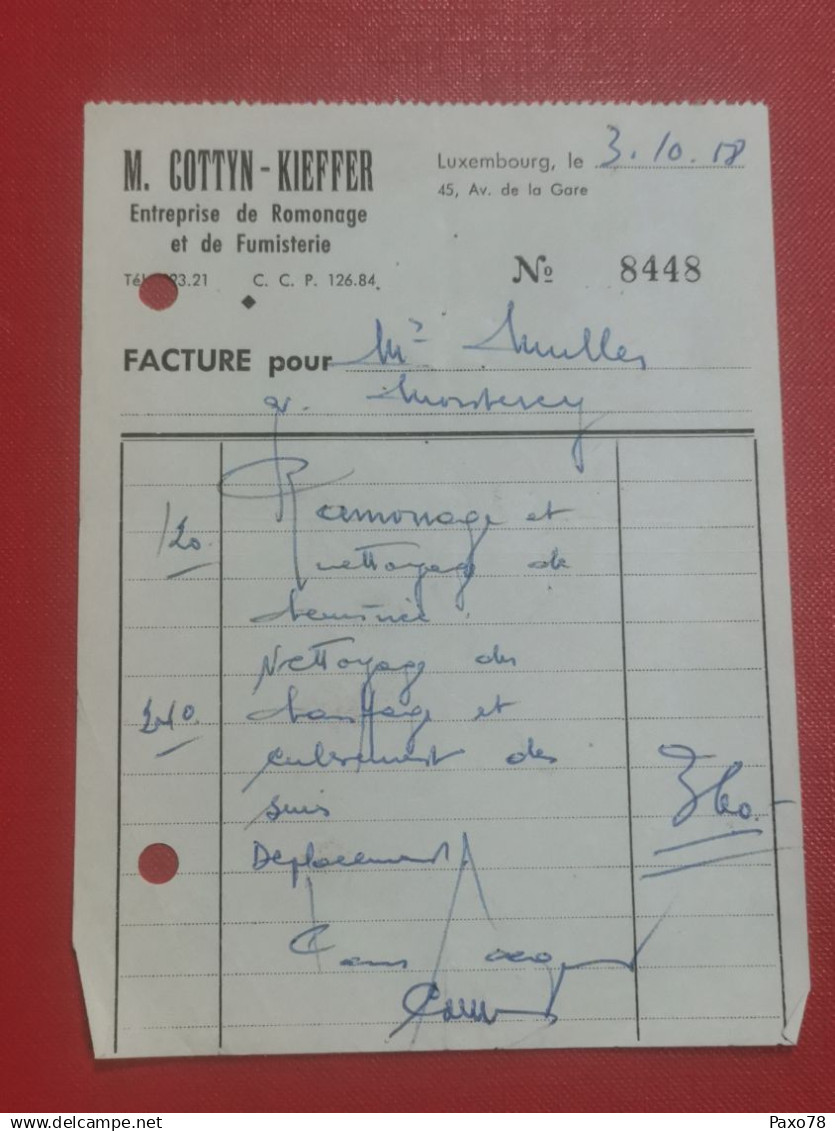 M. COTTYN - KIEFFER
Entreprise de Romonage
et de Fumisterie
Tél. 23.21 C. C. P. 126.84
Luxembourg, le 3. 10. 58
45, Av. de la Gare
No 8448
FACTURE pour Mr Muller
Monterey
120. Ramonage et
nettoyage de
cheminée.
Nettoyage des
240. chauffage et
enlevement des
suies 360.-
Déplacement
Paxo78